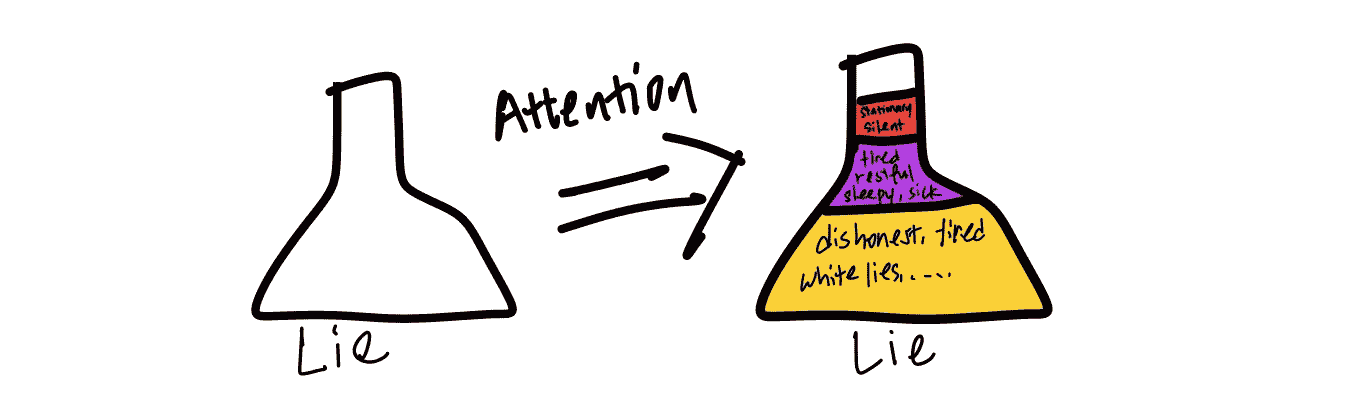 Attention
Stationary
silent
tired
restful
sleepy, sick
dishonest, tired
white lies,.....
Lie
Lie